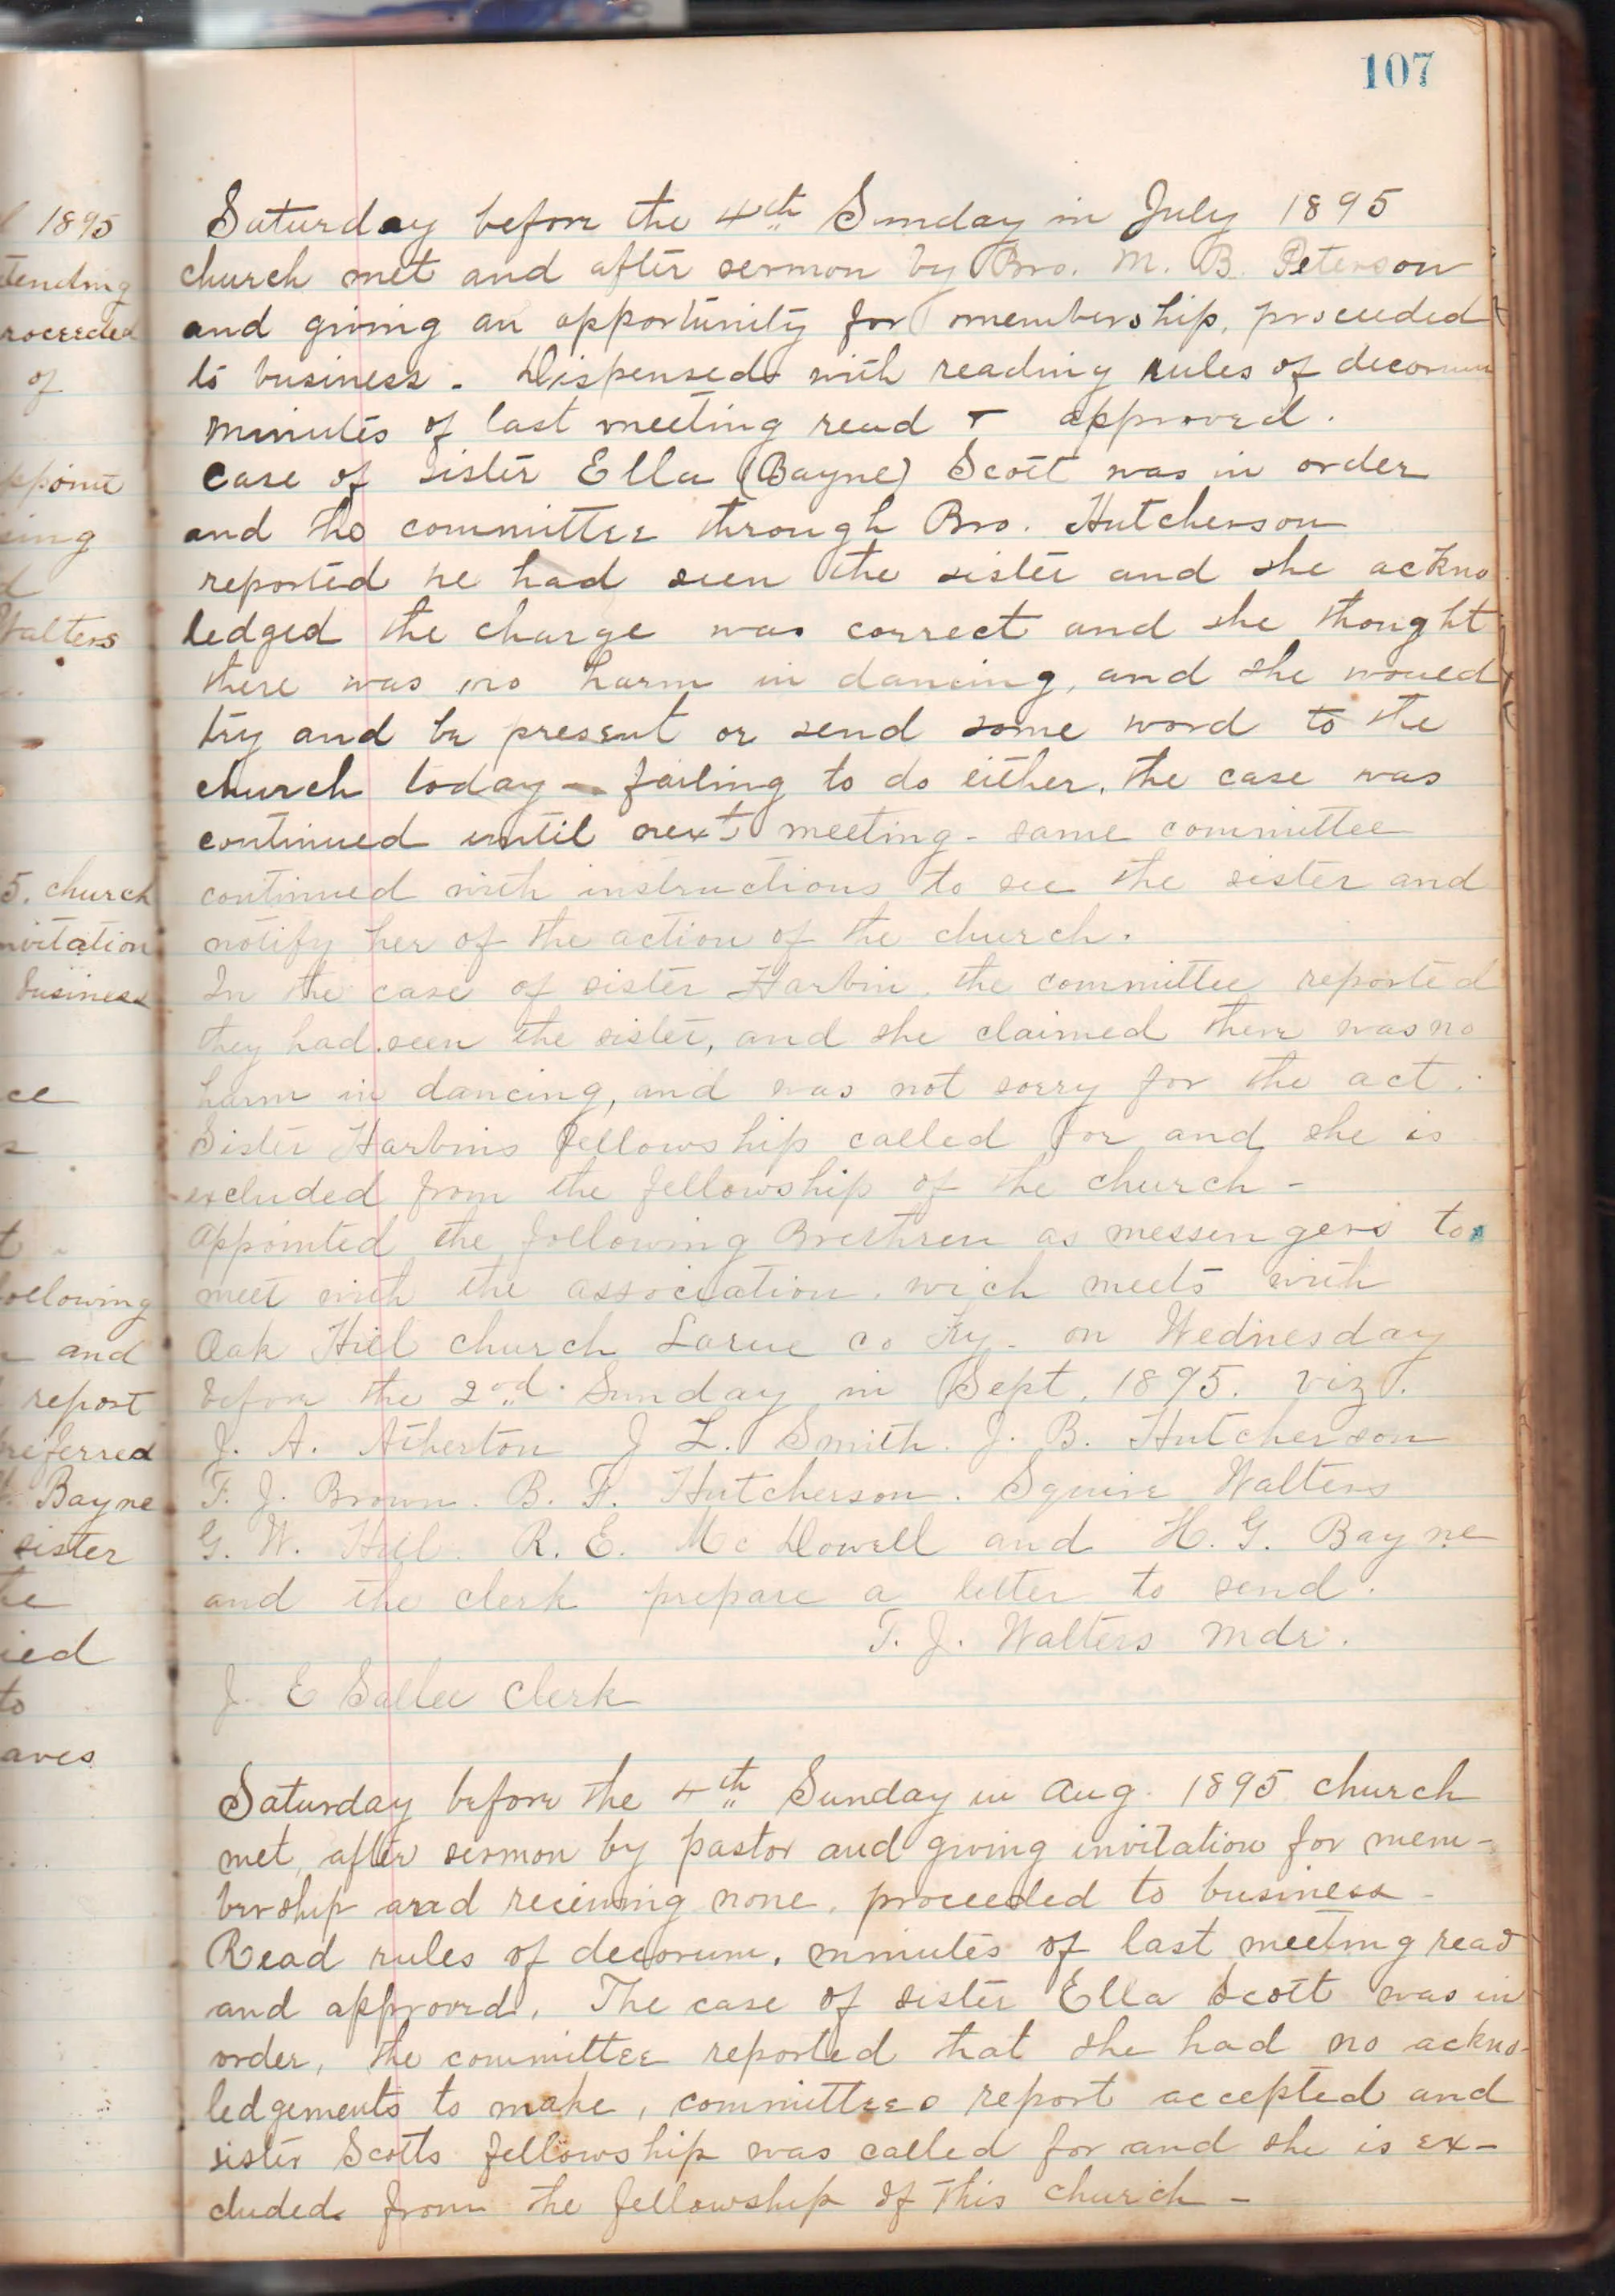 107
Saturday before the 4th Sunday in July 1895
church met and after sermon by Bro. M. B. Peterson
and giving an opportunity for membership, proceeded
to business. Dispensed with reading rules of decorum
minutes of last meeting read & approved.
case of sister Ella (Bayne) Scott was in order
and the committee through Bro. Hutcherson
reported he had seen the sister and she ackno
ledged the charge was correct and she thought
there was no harm in dancing, and she would
try and be present or send some word to the
church today - failing to do either, the case was
continued until next meeting - same committee
continued with instructions to see the sister and
notify her of the action of the church.
In the case of sister Harbin, the committee reported
they had seen the sister, and she claimed there was no
harm in dancing, and was not sorry for the act.
Sister Harbins fellowship called for and she is
excluded from the fellowship of the church -
appointed the following Brethren as messengers to
meet with the association. wich meets with
Oak Hill church Larue co Ky. on Wednesday
before the 2nd Sunday in Sept. 1895. viz.
J. A. Atherton J L. Smith. J. B. Hutcherson
F. J. Brown. B. F. Hutcherson. Squire Walters
G. W. Hill. R. E. McDowell and H. G. Bayne
and the clerk prepare a letter to send.
T. J. Walters Mdr.
J. E Sallee Clerk
Saturday before the 4th Sunday in Aug. 1895 church
met, after sermon by pastor and giving invitation for mem-
bership and receiving none, proceeded to business -
Read rules of decorum, minutes of last meeting read
and approved. The case of sister Ella Scott was in
order, the committee reported that she had no ackno-
ledgements to make, committees report accepted and
sister Scotts fellowship was called for and she is ex-
cluded from the fellowship of this church -
1895
tending
roceeded
of
ppoint
sing
d
Walters
5. church
nvitation
business
ce
s
t
following
and
report
referred
Bayne
sister
he
ied
to
aves